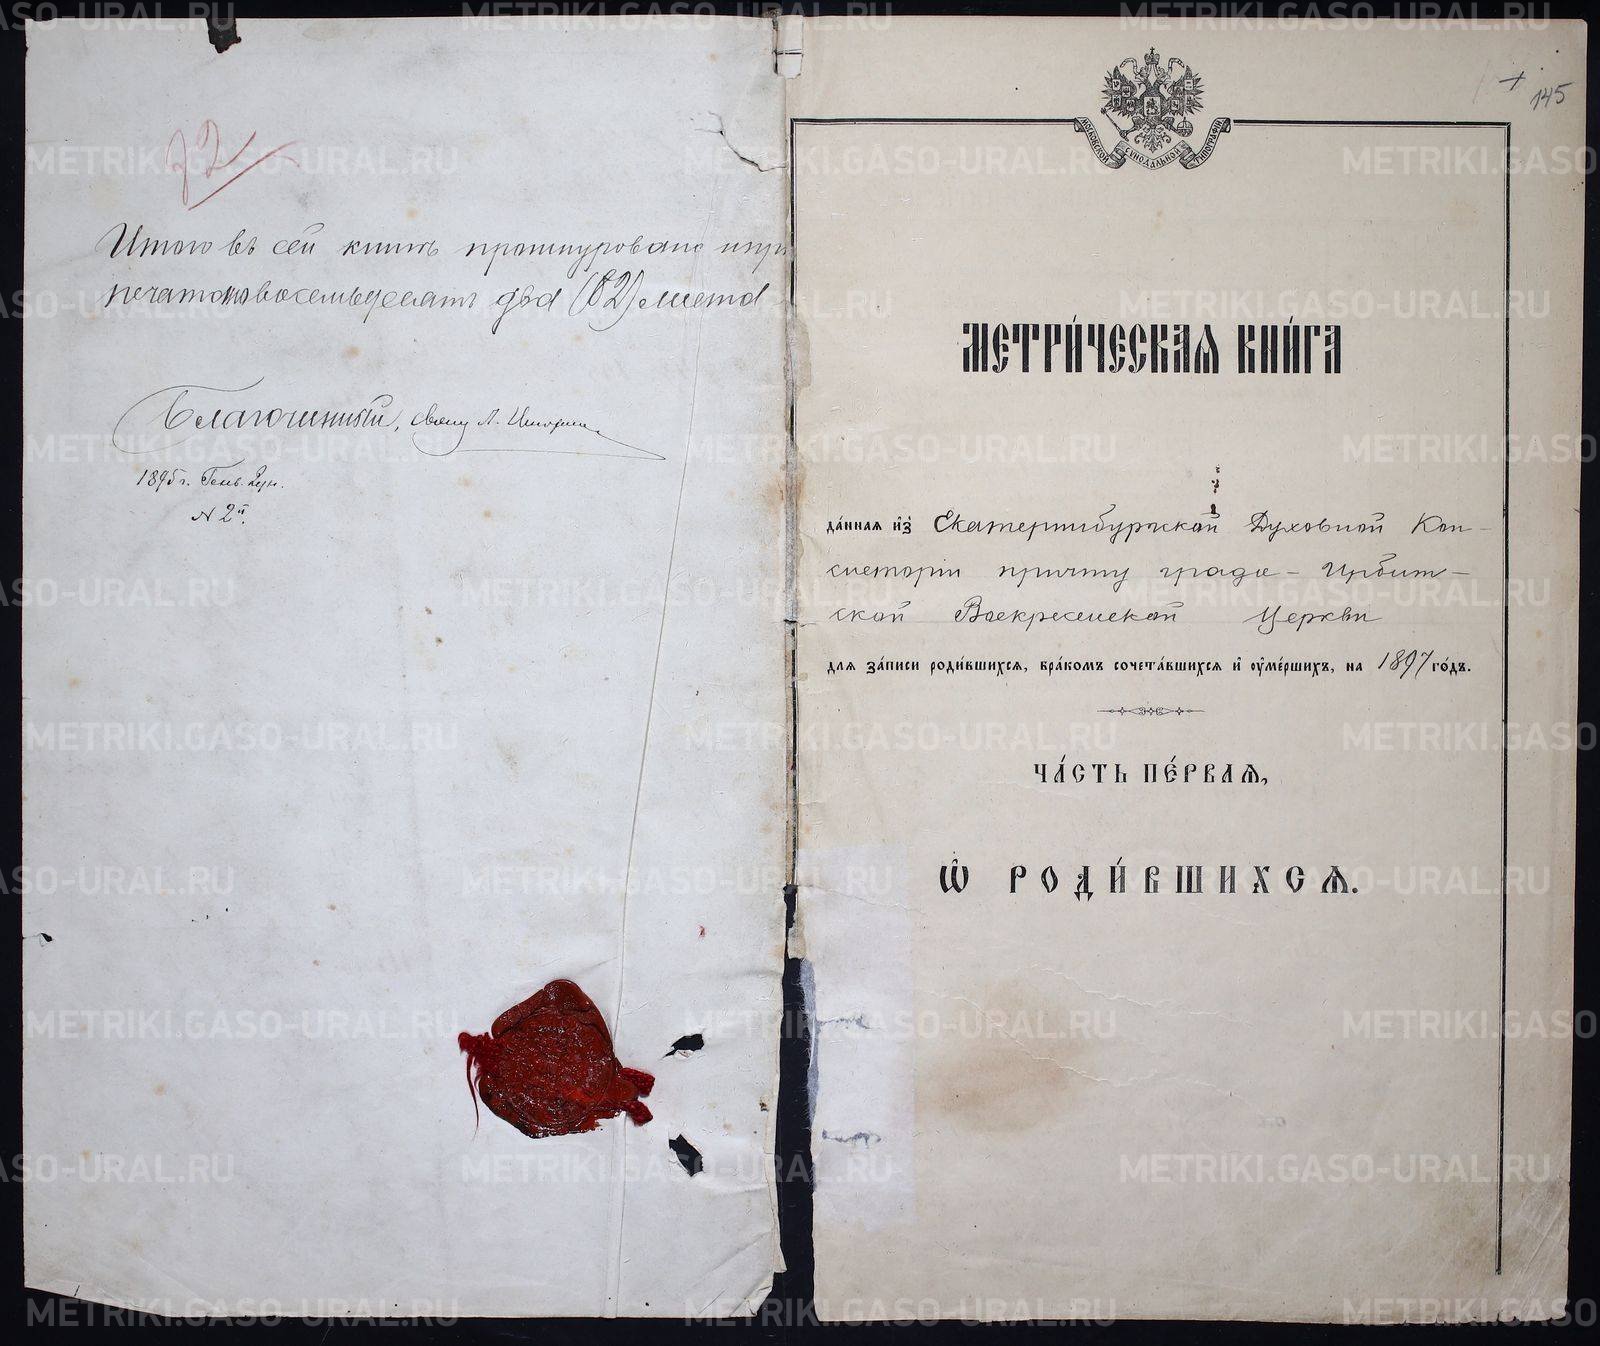 82
Итого въ сей книгѣ прошнуровано и при
печатано восемьдесятъ два (82) листа
Благочинный,
1895 г. Генв.
№ 2й.
145
МОСКОВСКОЙ СѴНОДАЛЬНОЙ ТИПОГРАФІИ
МЕТРИ́ЧЕСКАѦ КНИ́ГА
да́нная и҆з̾ Екатеринбургской Духовной Кон-
систоріи причту градо-Ирбит-
ской Воскресенской Церкви
для за́писи роди́вшихся, бра́комъ сочета́вшихся и҆ ᲂу҆ме́ршихъ, на 1897 го́дъ.
ЧА́СТЬ ПЕ́РВАѦ,
Ѡ҆ РОДИ́ВШИХСѦ.
METRIKI.GASO-URAL.RU